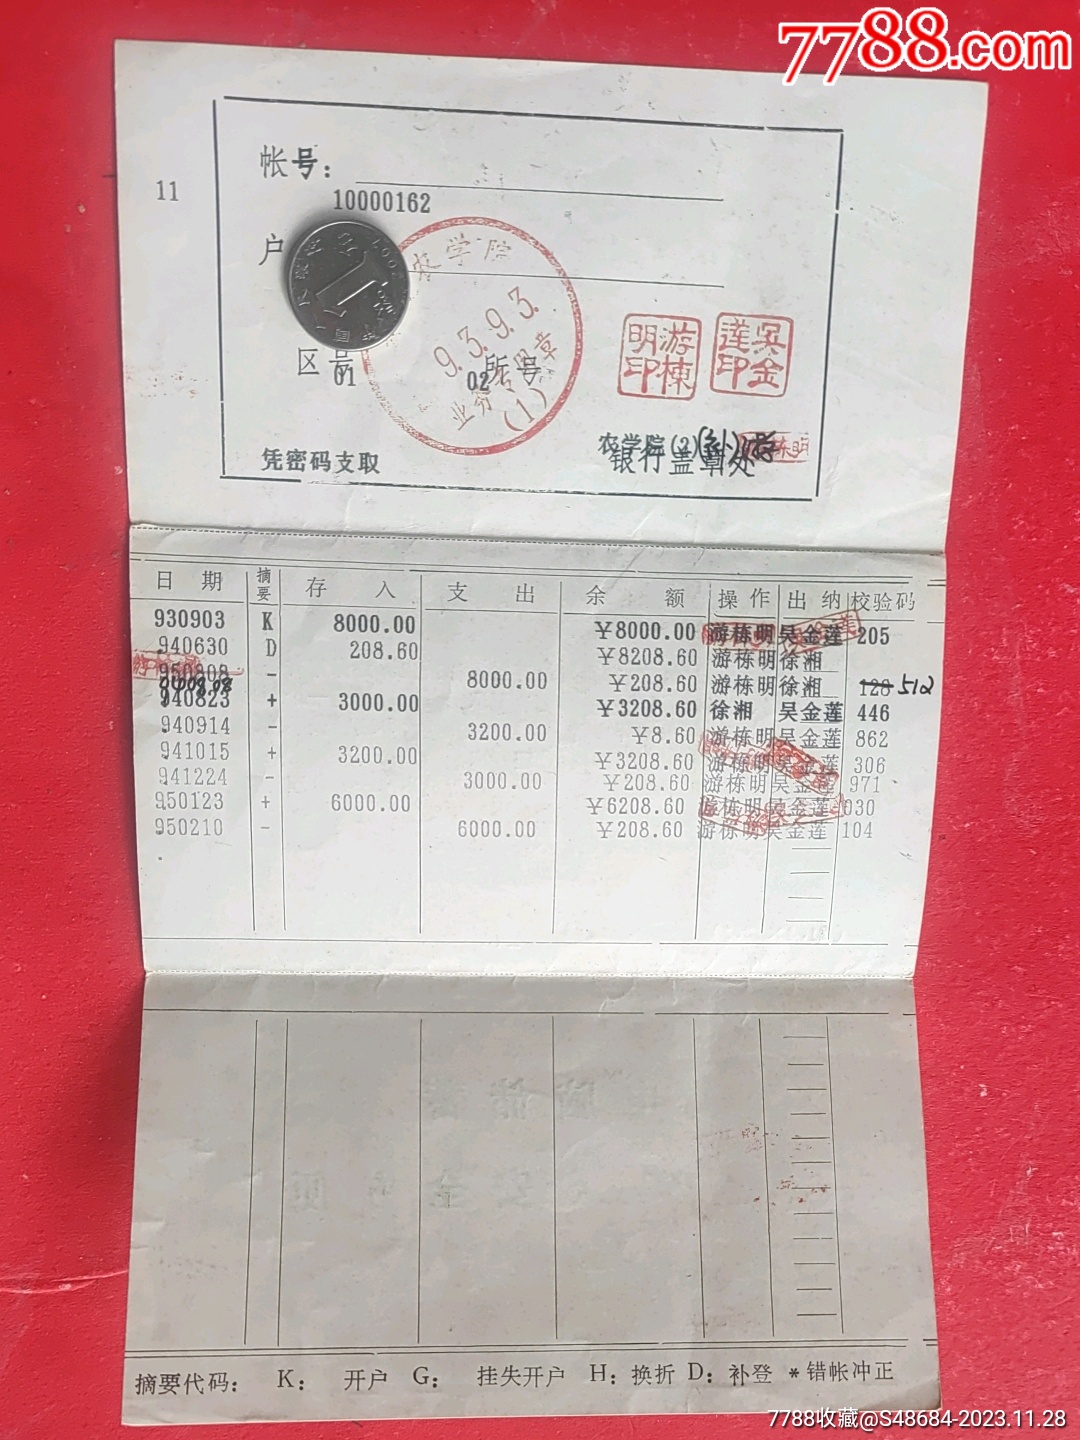 7788.com
11
帐号：
10000162
户
农学院
93.9.3.
业务专用章
(1)
区号
01
02
所号
游栋明印
吴金莲印
凭密码支取
农学院(2)(补)
银行盖章处
日期 摘要 存入 支出 余额 操作 出纳 校验码
930903 K 8000.00 ￥8000.00 游栋明 吴金莲 205
940630 D 208.60 ￥8208.60 游栋明 徐湘
950808 - 8000.00 ￥208.60 游栋明 徐湘 128 512
940823 + 3000.00 ￥3208.60 徐湘 吴金莲 446
940914 - 3200.00 ￥8.60 游栋明 吴金莲 862
941015 + 3200.00 ￥3208.60 游栋明 吴金莲 306
941224 - 3000.00 ￥208.60 游栋明 吴金莲 971
950123 + 6000.00 ￥6208.60 游栋明 吴金莲 030
950210 - 6000.00 ￥208.60 游栋明 吴金莲 104
摘要代码： K： 开户 G： 挂失开户 H：换折 D：补登 *错帐冲正
7788收藏@S48684-2023.11.28